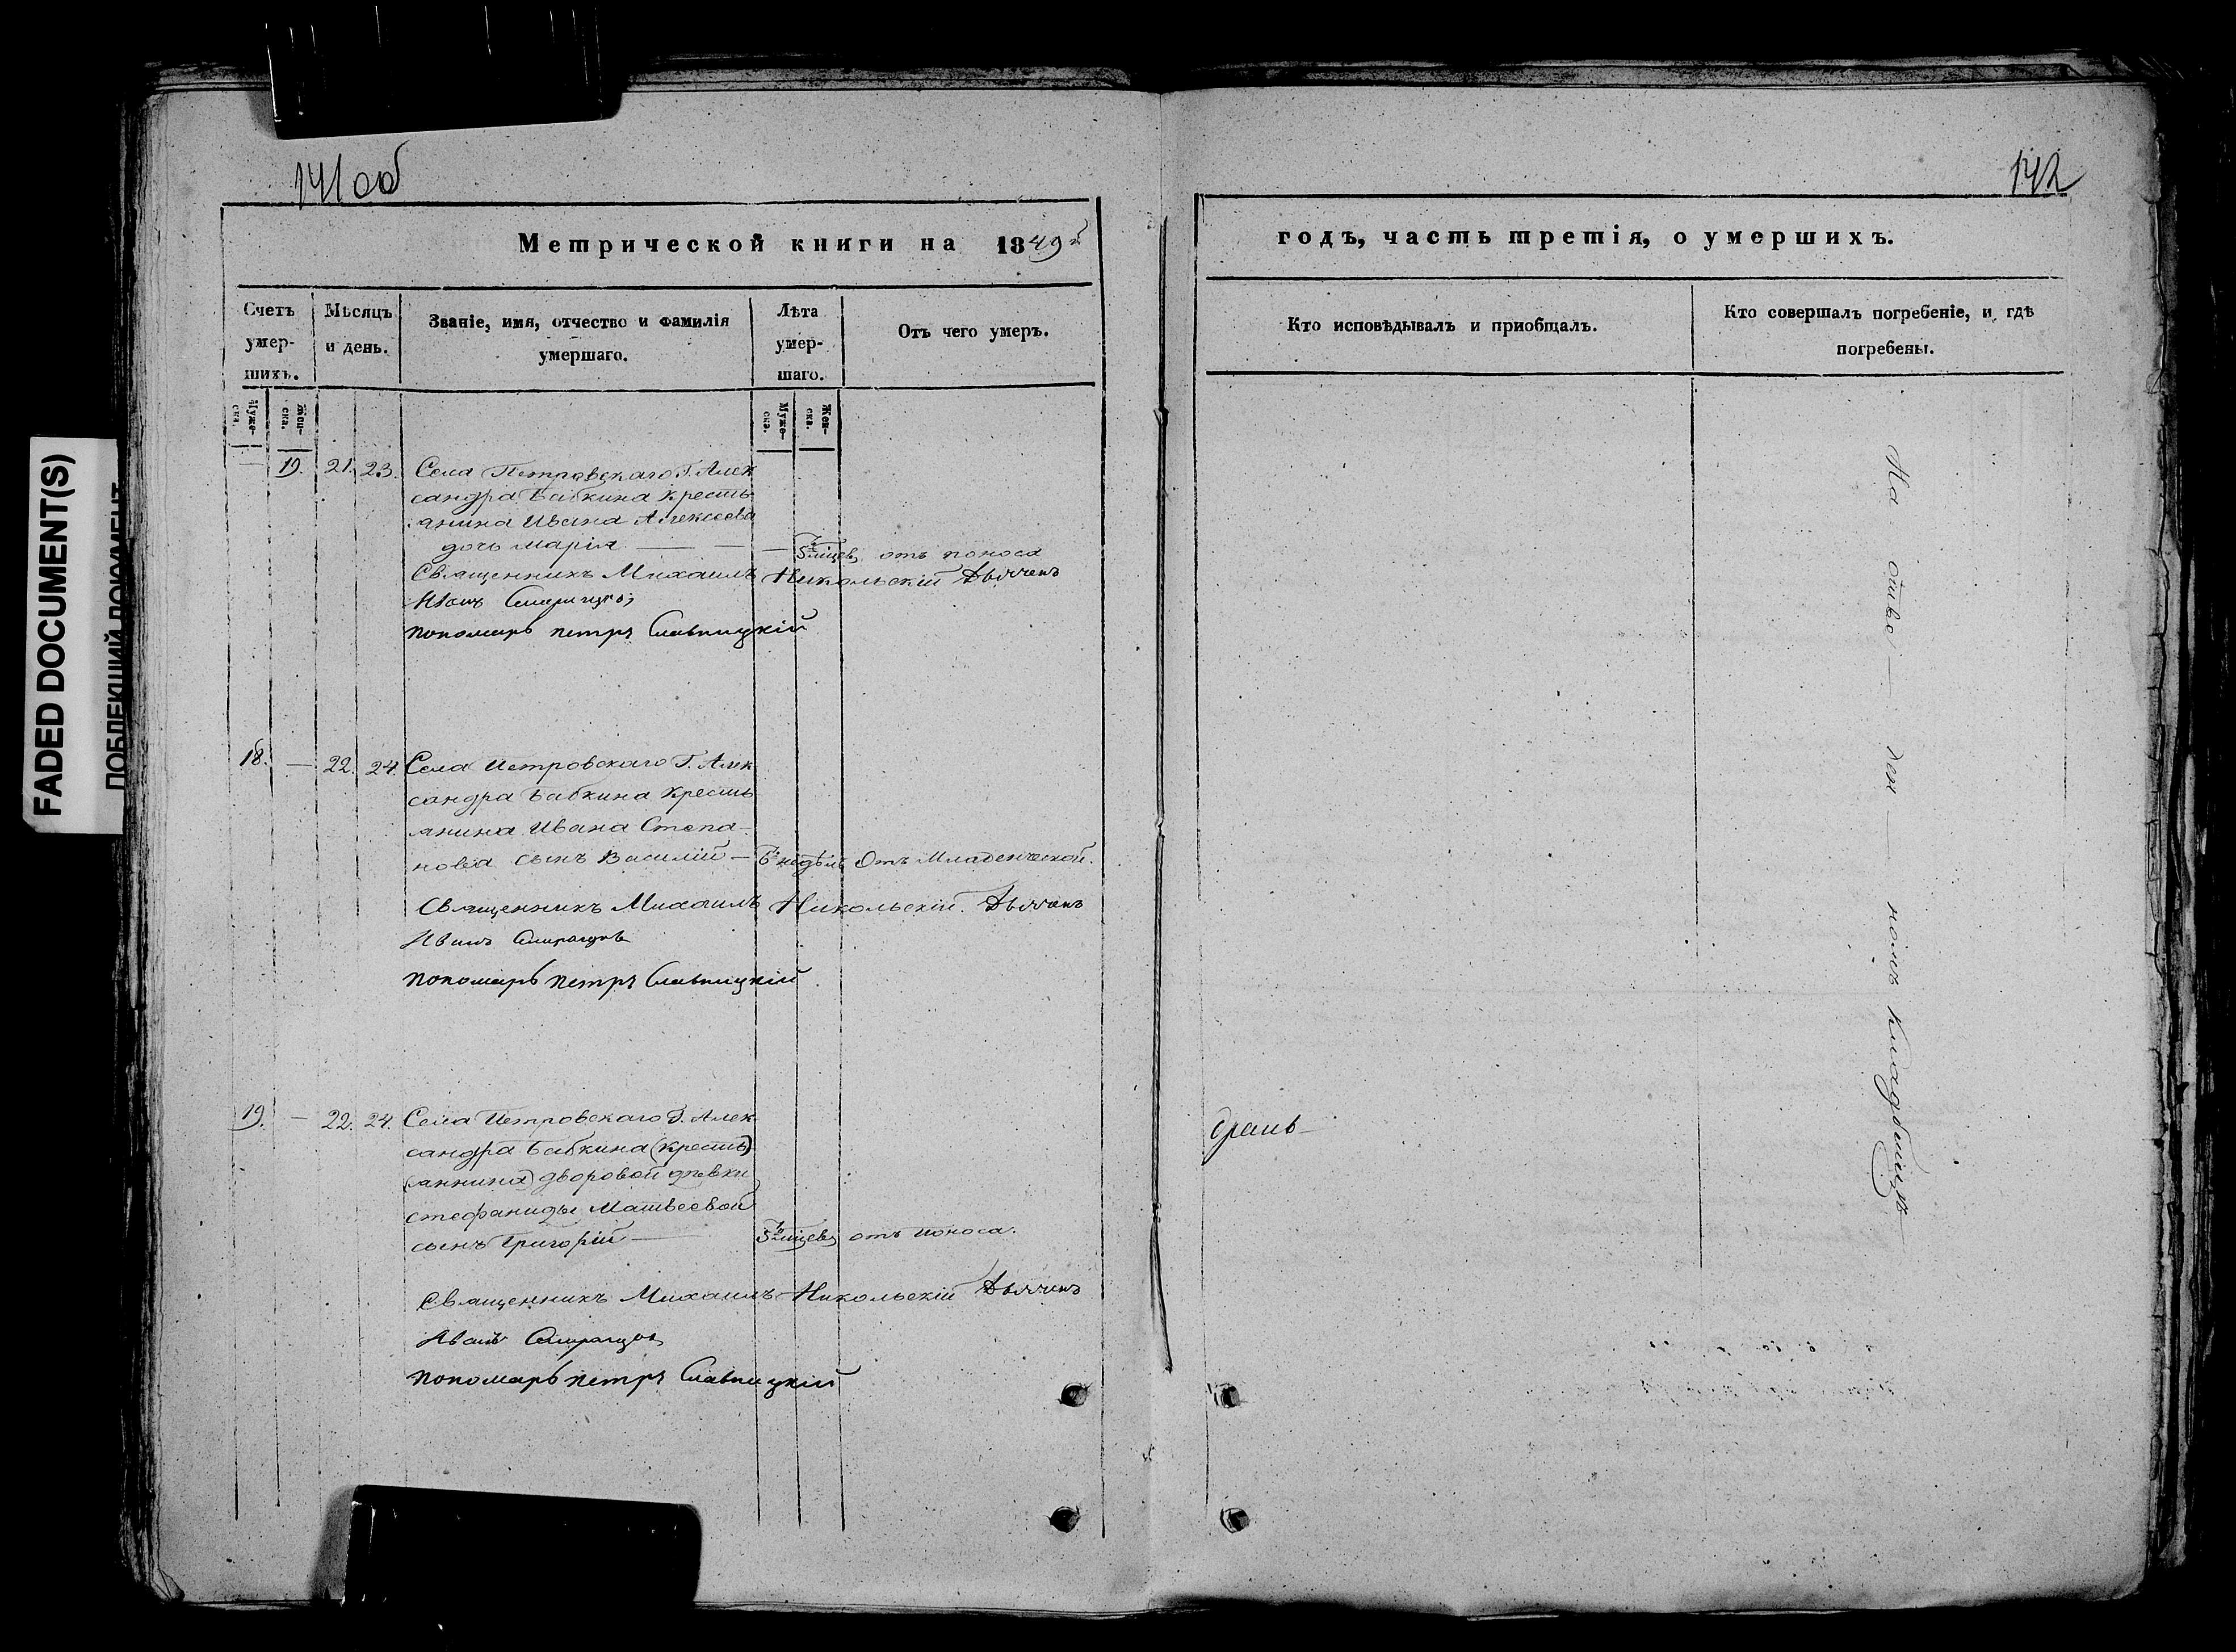 FADED DOCUMENT(S)
ПОБЛЕКШИЙ ДОКУМЕНТ
141 об
Метрической книги на 1849й
Счетъ умер-шихъ.
Мѣсяцъ и день.
Званіе, имя, отчество и фамилія умершаго.
Лѣта умер-шаго.
Отъ чего умеръ.
Муже-ска.
Жен-ска.
Муже-ска.
Жен-ска.
— 19. 21. 23. Села Петровскаго Г. Алек
сандра Бабкина кресть
янина Ивана Алексеева
дочь Марія — — — 5 міцев отъ поноса
Священникъ Михаилъ Никольскій Дьячекъ
Иванъ
пономарь петръ Славницкій
18. — 22. 24. Села Петровскаго Г. Алек
сандра Бабкина кресть
янина Ивана Степа-
нова сынъ Василій — 6 недѣль Отъ Младенческой.
Священникъ Михаилъ Никольскій. Дьячекъ
Иванъ
пономарь петръ Славницкій
19. — 22. 24. Села Петровскаго Г. Алек
сандра Бабкина (кресть)
(янина) дворовой дѣвки
Стефаниды Матвеевой
сынъ Григорій — 5 міцев отъ поноса.
Священникъ Михаилъ Никольскій Дьячекъ
Иванъ
пономарь петръ Славницкій
142
годъ, часть третія, о умершихъ.
Кто исповѣдывалъ и приобщалъ.
Кто совершалъ погребеніе, и гдѣ погребены.
На отве — ден — номъ кладбищѣ